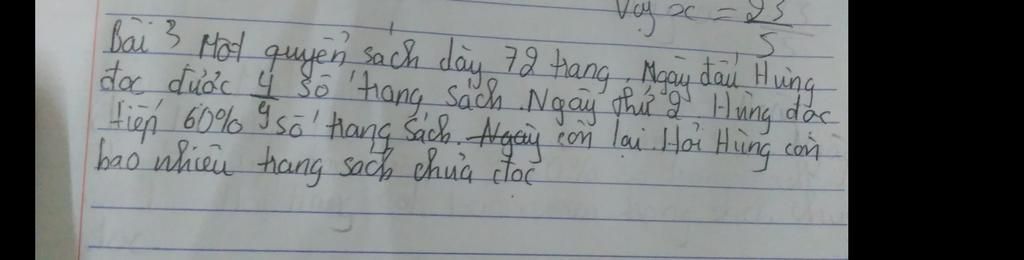 Vậy x = 23/5
Bài 3 Một quyển sách dày 72 trang. Ngày đầu Hùng
đọc được 4/9 số trang sách. Ngày thứ 2 Hùng đọc
tiếp 60% số trang sách. Ngày còn lại. Hỏi Hùng còn
bao nhiêu trang sách chưa đọc